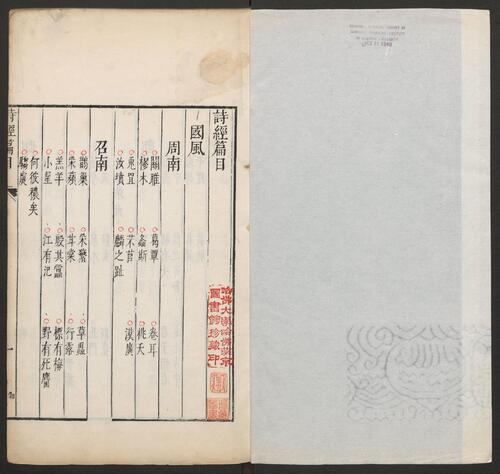 詩經篇目
國風
周南
關雎 葛覃 卷耳
樛木 螽斯 桃夭
兎罝 芣苢 漢廣
汝墳 麟之趾
召南
鵲巢 采蘩 草蟲
采蘋 甘棠 行露
羔羊 殷其靁 摽有梅
小星 江有汜 野有死麕
何彼穠矣
騶虞
詩經篇目
一
哈佛大學哈佛燕京
圖書館珍藏印